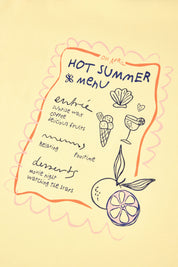 HOT SUMMER
& menu
entrée
sunrise walk
coffee
delicious fruits
menus
Relaxing Paint me
desserts
movie night
watching the stars